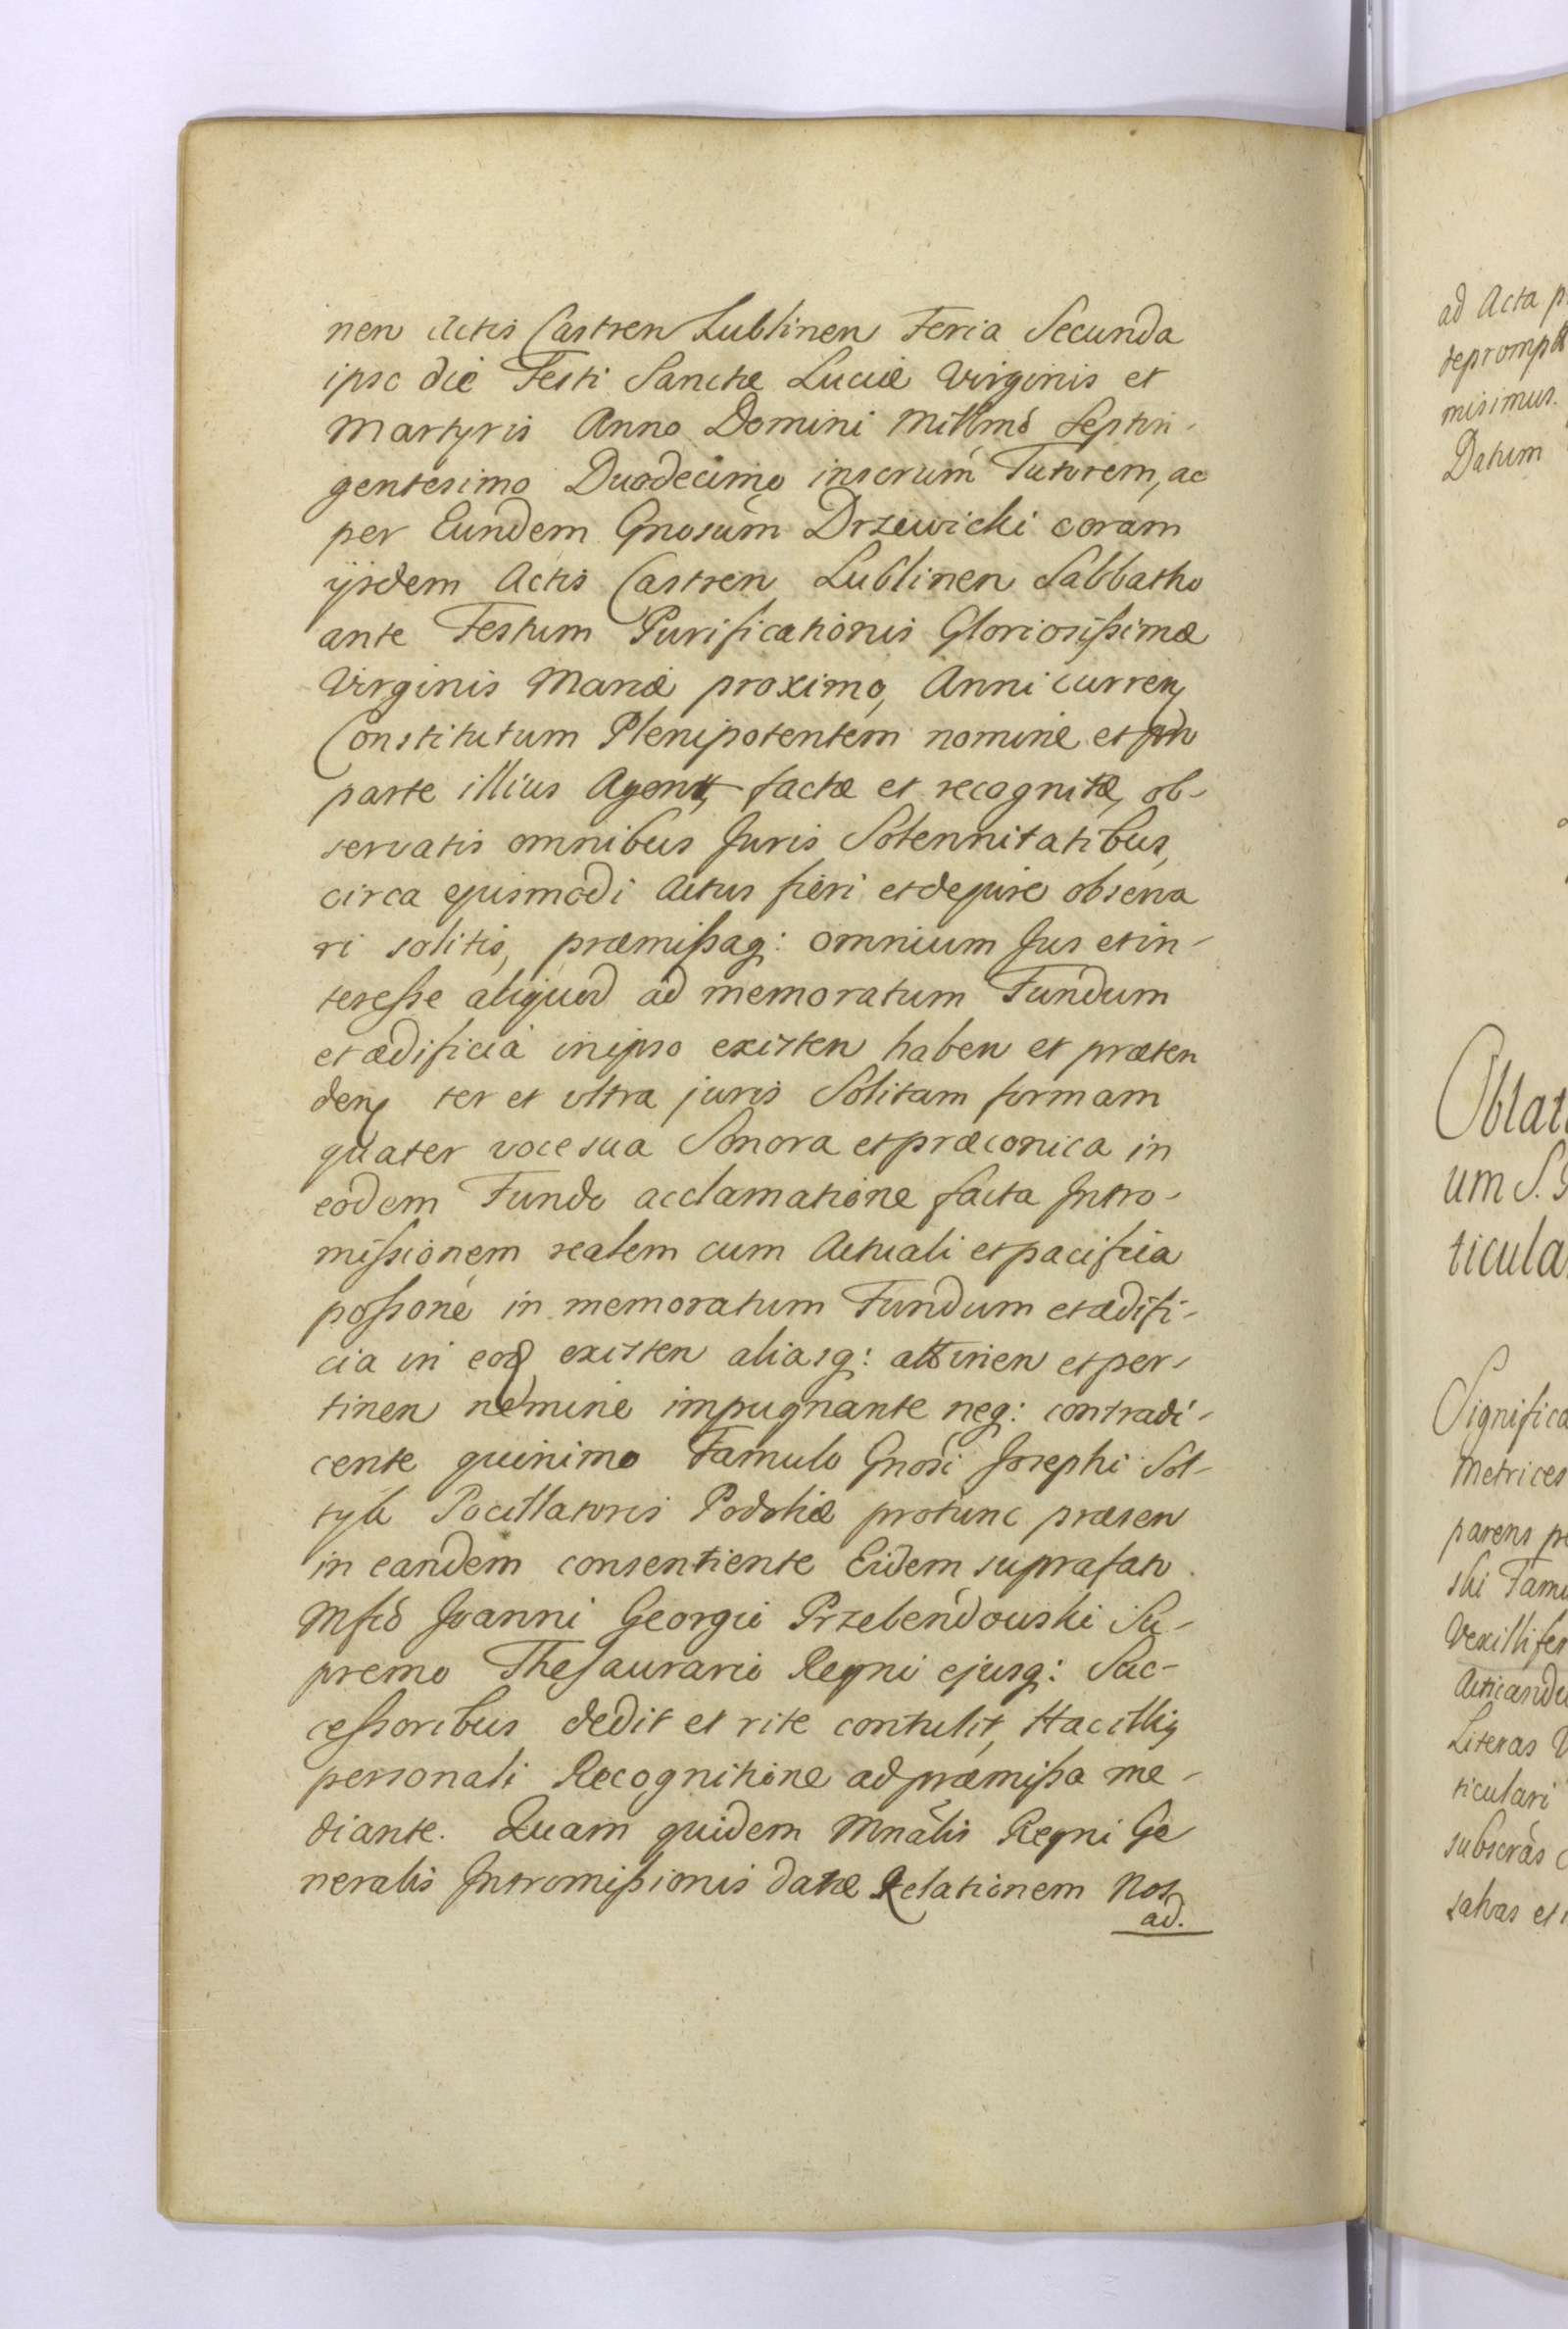 nen Actis Castren Lublinen Feria Secunda
ipso die Festi Sanctæ Luciæ Virginis et
Martyris Anno Domini Millmo Septin-
gentesimo Duodecimo inscrum Tutorem, ac
per Eundem Gnosum Drzewicki coram
ijsdem Actis Castren Lublinen Sabbatho
ante Festum Purificationis Gloriosissimæ
Virginis Mariæ proximo, Anni curren
Constitutum Plenipotentem nomine et pro
parte illius Agent, factæ et recognitæ, ob-
servatis omnibus Juris Solennitatibus,
circa ejusmodi Actus fieri et de jure observa
ri solitis, præmissaq: omnium Jus et in-
teresse aliquod ad memoratum Fundum
et ædificia in ipso existen haben et præten
den ter et ultra juris Solitam formam
quater voce sua Sonora et præconica in
eodem Fundo acclamatione facta Intro-
missionem realem cum Actuali et pacifica
possone in memoratum Fundum et ædifi-
cia in eod existen aliasq: attinen et per-
tinen nemine impugnante neq: contradi-
cente quinimo Famulo Gnosi Josephi Sol-
tyk Pocillatoris Podoliæ protunc præsen
in eandem consentiente Eidem suprafato
Mfco Joanni Georgio Przebendowski Su-
premo Thesaurario Regni ejusq: Suc-
cessoribus dedit et rite contulit, Hac illius
personali Recognitione ad præmissa me-
diante. Quam quidem Mnalis Regni Ge
neralis Intromissionis datæ Relationem Nos
ad.
ad Acta
misimus.
Datum
um S.
ticula
Significa
Metrices
parens
ski
Literas
ticulari
salvas et